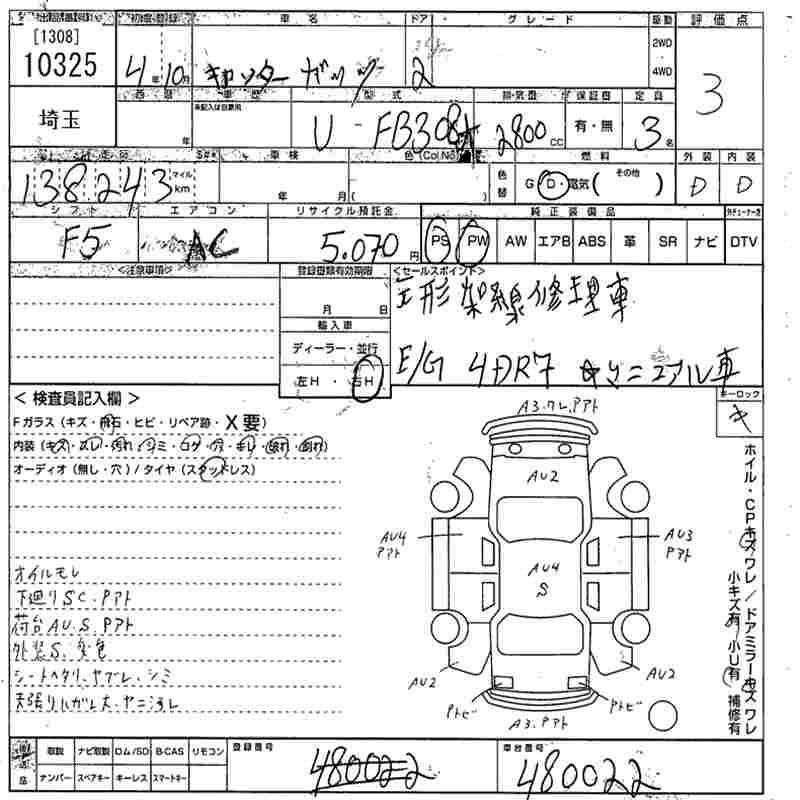 初度登録 車名 ドア グレード 駆動 評価点
[1308]
10325 4年10月 キャンター ガッツ 2 2WD 4WD 3
埼玉 車歴 型式 排気量 保証書 定員
未記入は自家用
年 U-FB308A 2800cc 有・無 3名
走行 車検 色(Col No) 燃料 外装 内装
138,243 マイル km 年 月( ) 色替 G・D・電気( その他 ) D D
シフト エアコン リサイクル預託金 純正装備品
F5 AC 5.070円 PS PW AW エアB ABS 革 SR ナビ DTV
<注意事項> 登録書類有効期限 <セールスポイント>
月 日
輸入車
ディーラー・並行
左H・右H
架線修理車
E/G 4DR7 マニュアル車
キーロック
キ
< 検査員記入欄 >
Fガラス(キズ・飛石・ヒビ・リペア跡・X要)
内装(キズ・スレ・汚れ・シミ・コゲ・穴・キレ・破れ・割れ)
オーディオ(無し・穴)/タイヤ(スタッドレス)
オイルモレ
下廻りSC.アアト
荷台AU.S.アアト
外装S.変色
シートヘタリ.ヤブレ.シミ
天張りハガレ大.ヤニ汚レ
A3.ワレ.アアト
AU2
AU4
アアト
AU3
アアト
AU4
S
AU2
AU2
アトビ
アトビ
A3.アアト
ホイル・CPキズワレ/ドアミラーキズワレ
小キズ有 小U有 補修有
取説 ナビ取説 ロム/SD B-CAS リモコン 登録番号 車台番号
ナンバー スペアキー キーレス スマートキー 480022 480022